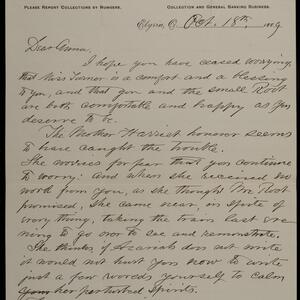 PLEASE REPORT COLLECTIONS BY NUMBERS.
COLLECTION AND GENERAL BANKING BUSINESS.
Elyria, O. Oct. 18th, 1889
Dear Emma,
I hope you have ceased worrying,
that Miss Turner is a comfort and a blessing
to you, and that you and the small Root
are both comfortable and happy as you
deserve to be.
The Mother Harriet however seems
to have caught the trouble.
She worries for fear that you continue
to worry: And when she received no
word from you, as she thought Mr Root
promised, she came near, in spite of
every thing, taking the train last eve-
ning to go over to see and demonstrate.
She thinks if Azariah does not write
it would not hurt you now to write
just a few words yourself to calm
her perturbed Spirits.